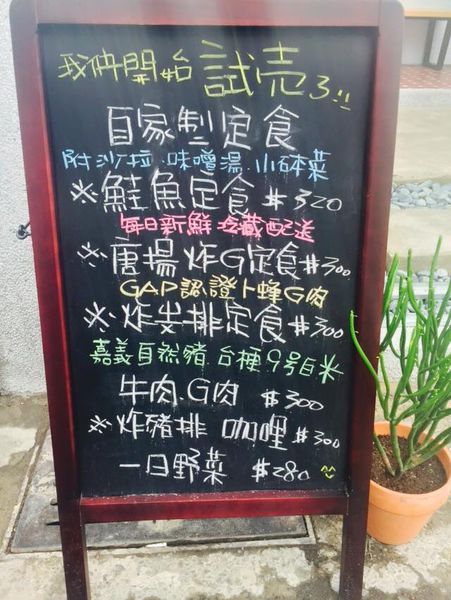 我們開始試売了!!
自家製定食
附沙拉.味噌湯 小砵菜
※鮭魚定食 $320
每日新鮮 冷藏配送
※唐揚炸G定食 $300
GAP認證卜蜂G肉
※炸豬排定食 $300
嘉義自然豬 台梗9号白米
牛肉.G肉 $300
※炸豬排 咖哩 $300
一日野菜 $280